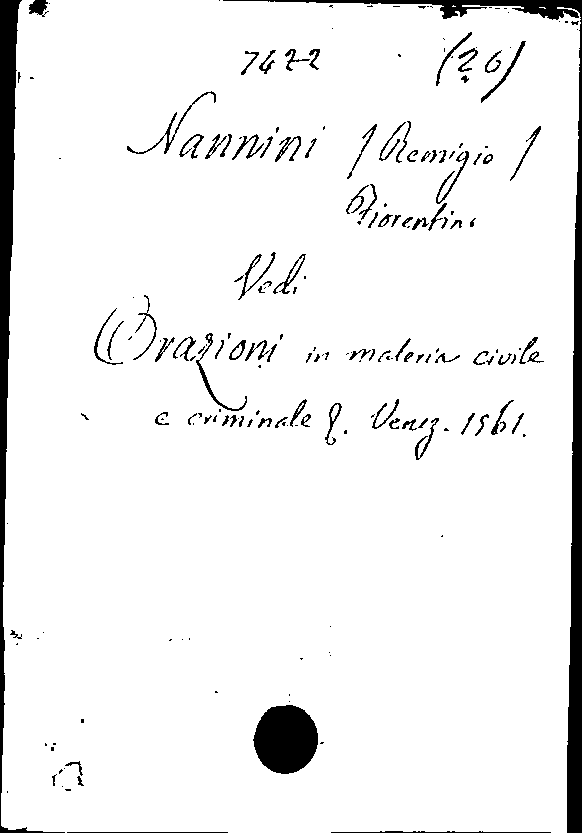 7422 (26)
Nannini / Remigio /
Fiorentino
Vedi
Orazioni in materia civile
e criminale &. Venez. 1561.